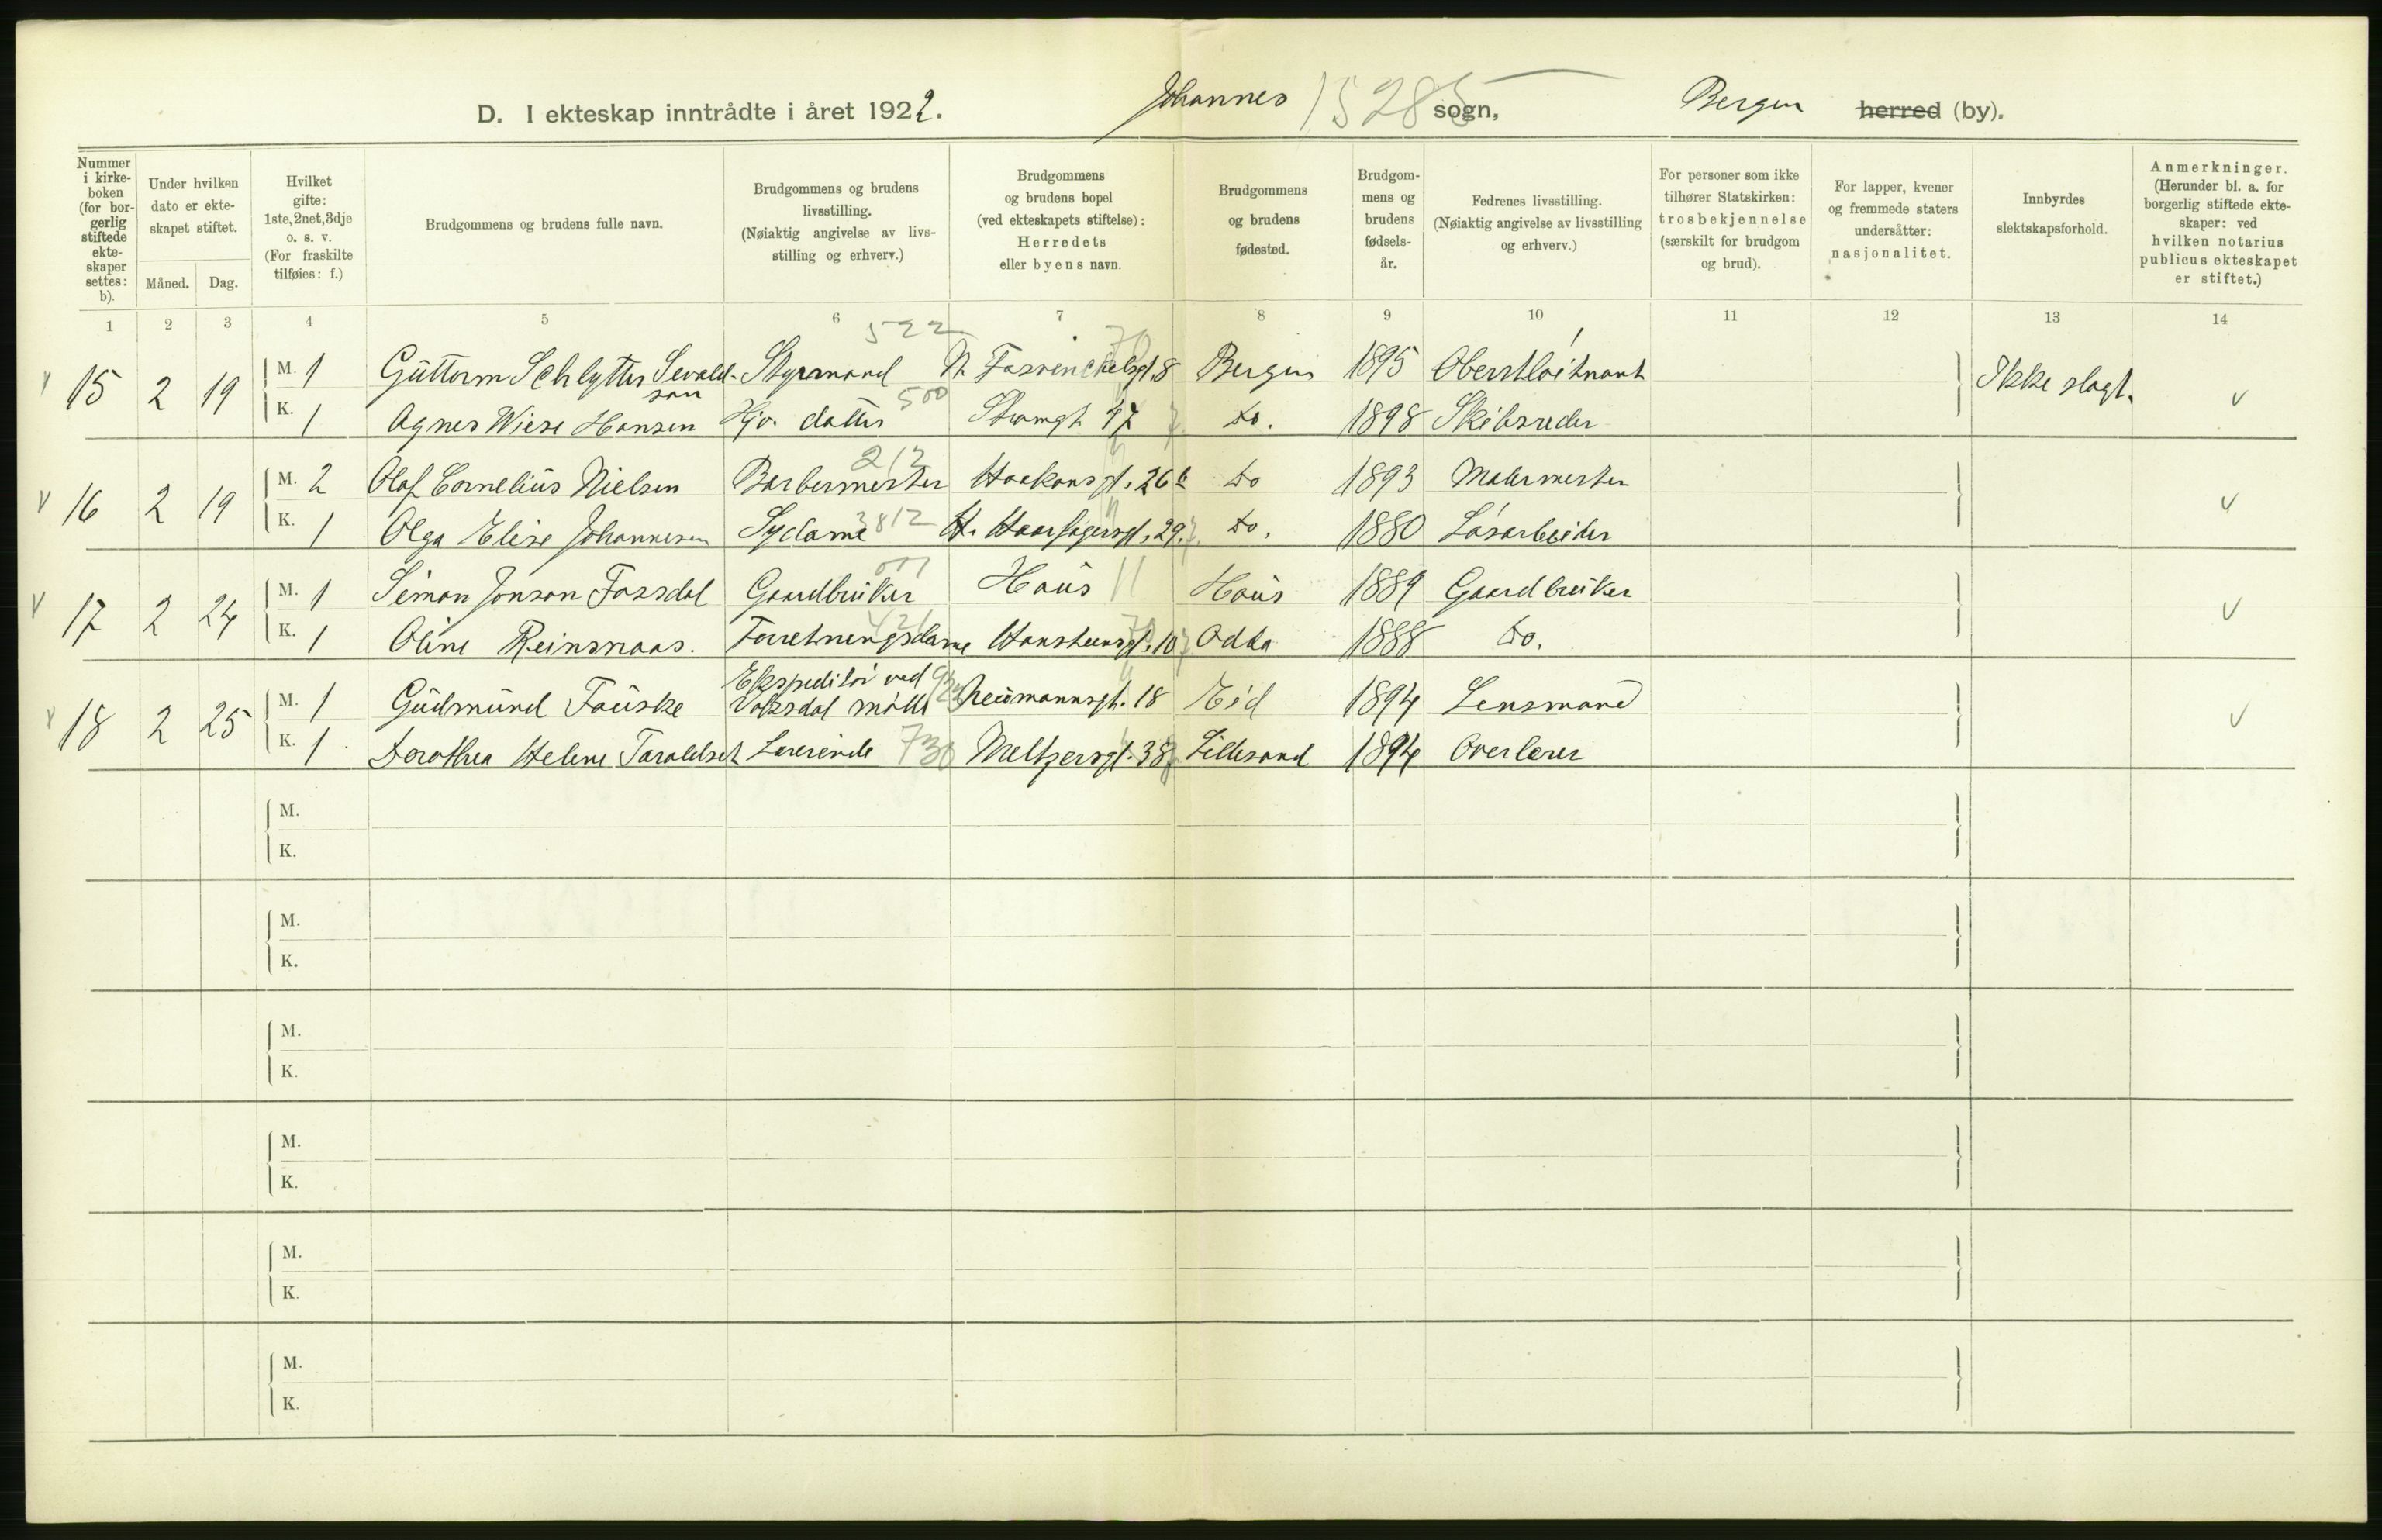 D. I ekteskap inntrådte i året 1922. Johannes 15285 sogn, Bergen herred (by).
Nummer i kirke-boken (for bor-gerlig stiftede ekte-skaper settes: b).
Under hvilken dato er ekte-skapet stiftet.
Måned. Dag.
Hvilket gifte: 1ste, 2net, 3dje o. s. v. (For fraskilte tilføies: f.)
Brudgommens og brudens fulle navn.
Brudgommens og brudens livsstilling. (Nøiaktig angivelse av livs-stilling og erhverv.)
Brudgommens og brudens bopel (ved ekteskapets stiftelse): Herredets eller byens navn.
Brudgommens og brudens fødested.
Brudgom-mens og brudens fødsels-år.
Fedrenes livsstilling. (Nøiaktig angivelse av livsstilling og erhverv.)
For personer som ikke tilhører Statskirken: trosbekjennelse (særskilt for brudgom og brud).
For lapper, kvener og fremmede staters undersåtter: nasjonalitet.
Innbyrdes slektskapsforhold.
Anmerkninger. (Herunder bl. a. for borgerlig stiftede ekte-skaper: ved hvilken notarius publicus ekteskapet er stiftet.)
1 2 3 4 5 6 7 8 9 10 11 12 13 14
522
v 15 2 19 M. 1 Guttorm Schlytter Sevald-son Styrmand N. Fosswinckelsgt. 8 Bergen 1895 Oberstløitnant Ikke slægt. v
500
K. 1 Agnes Wiese Hansen Hjv. datter Strangt 47 do. 1898 Skibsreder
212
v 16 2 19 M. 2 Olaf Cornelius Nielsen Barbermester Haakonsgt. 26 b do 1893 Malermester v
K. 1 Olga Elise Johannesen Sydame 3812 H. Haarfagersgt. 29. do. 1880 Løsarbeider
v 17 2 24 M. 1 Simon Jonson Fossdal Gaardbruker Haus 11 Haus 1889 Gaardbruker v
421
K. 1 Oline Reinsnaas. Forretningsdame Hansteensgt. 10 Odda 1888 do.
v 18 2 25 M. 1 Gudmund Fauske Ekspeditør ved Vaksdal mølle Neumannsgt. 18 Eid 1894 Lensmand v
K. 1 Dorothea Helene Taraldset Lærerinde 730 Meltzersgt. 38 Lillesand 1894 Overlærer
M.
K.
M.
K.
M.
K.
M.
K.
M.
K.
M.
K.